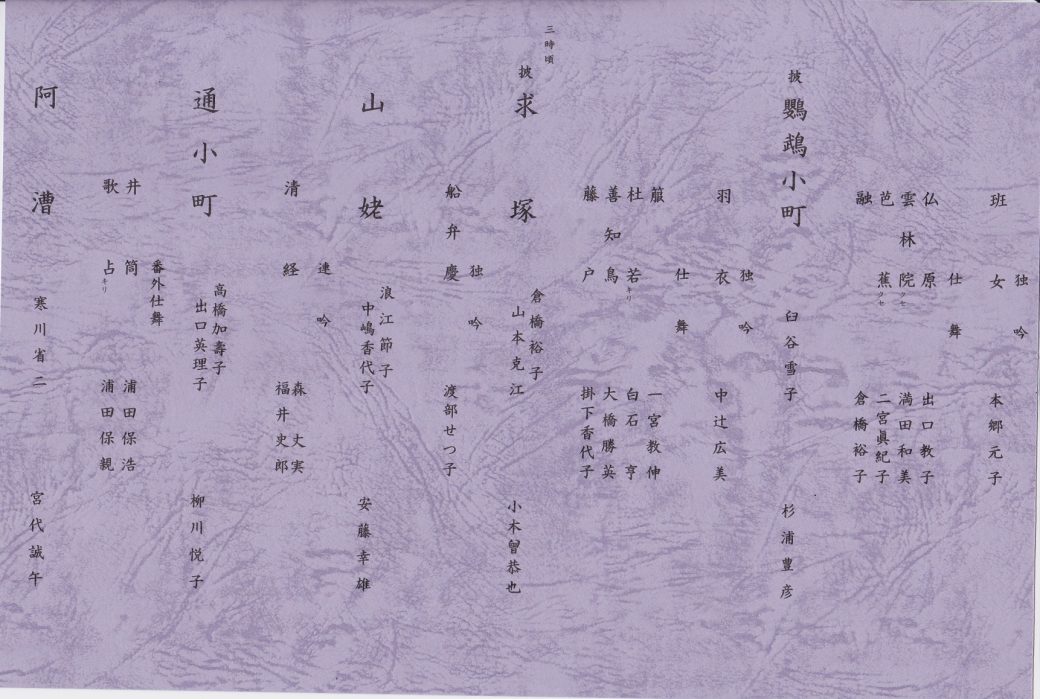 独吟
班女 本郷元子
仕舞
仏原 出口教子
雲林院クセ 満田和美
芭蕉クセ 二宮眞紀子
融 倉橋裕子
披 鸚鵡小町 臼谷雪子 杉浦豊彦
独吟
羽衣 中辻広美
仕舞
箙 一宮教伸
杜若キリ 白石亨
善知鳥 大橋勝英
藤戸 掛下香代子
三時頃
披 求塚 倉橋裕子 山本克江 小木曾恭也
独吟
船弁慶 渡部せつ子
山姥 浪江節子 中嶋香代子 安藤幸雄
連吟
清経 森丈実 福井史郎
通小町 高橋加壽子 出口英理子 柳川悦子
番外仕舞
井筒 浦田保浩
歌占キリ 浦田保親
阿漕 寒川省二 宮代誠午